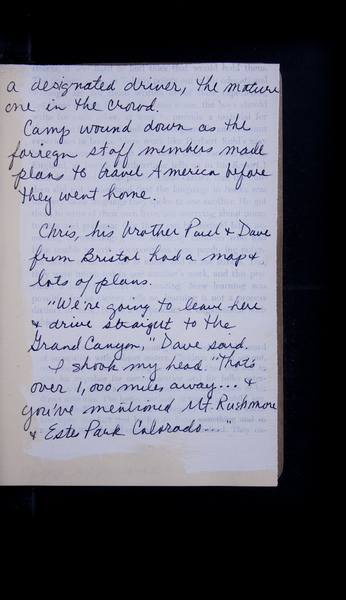 a designated driver, the mature
one in the crowd.
Camp wound down as the
foriegn staff members made
plans to travel America before
they went home.
Chris, his brother Paul & Dave
from Bristol had a map &
lots of plans.
"We're going to leave here
& drive straight to the
Grand Canyon," Dave said.
I shook my head. "That's
over 1,000 miles away... &
you've mentioned Mt. Rushmore
& Estes Park Colorado..."